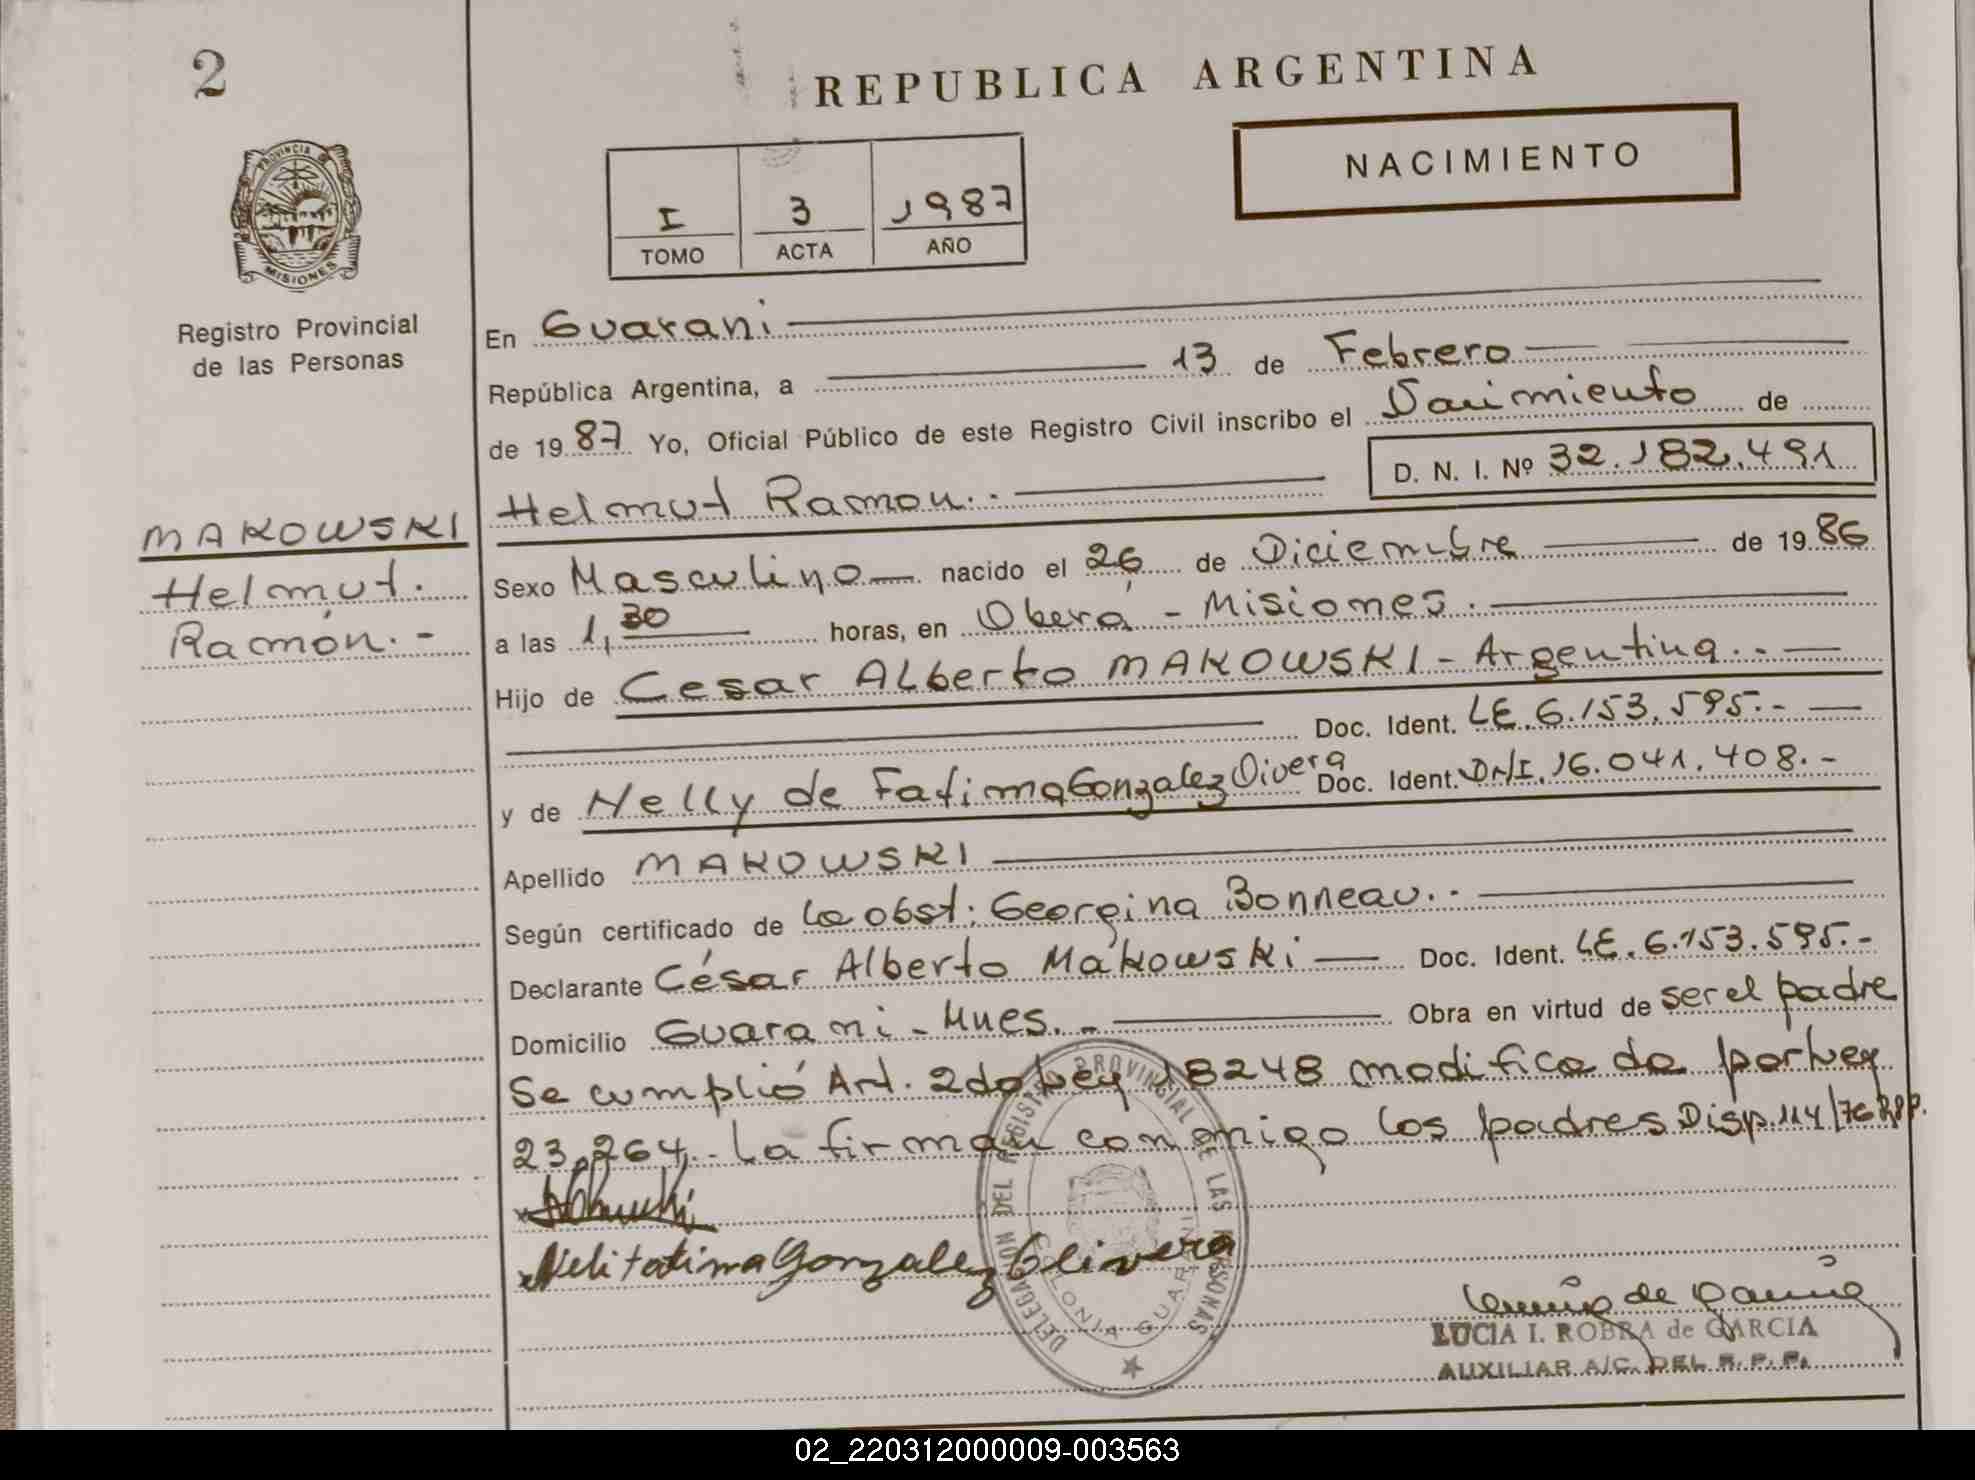 2
REPUBLICA ARGENTINA
NACIMIENTO
I 3 1987
TOMO ACTA AÑO
PROVINCIA DE
MISIONES
Registro Provincial
de las Personas
En Guarani
República Argentina, a 13 de Febrero
de 1987 Yo, Oficial Público de este Registro Civil inscribo el Nacimiento de
D. N. I. Nº 32.182.491
Helmut Ramon.-
MAKOWSKI
Helmut.
Ramón.-
Sexo Masculino nacido el 26 de Diciembre de 1986
a las 1,30 horas, en Oberá - Misiones.
Hijo de Cesar Alberto MAKOWSKI - Argentina.-
Doc. Ident. LE. 6.153.595.-
y de Nelly de Fatima Gonzalez Olivera Doc. Ident. DNI. 16.041.408.-
Apellido MAKOWSKI
Según certificado de la obst: Georgina Bonneau.-
Declarante César Alberto Makowski Doc. Ident. LE. 6.153.595.-
Domicilio Guarani - Mnes.- Obra en virtud de ser el padre
Se cumplió Art. 2do Ley 18248 modificada por Ley
23,264.- La firman conmigo los padres Disp. 114/76
Neli Fatima Gonzalez Olivera
DELEGACION DEL REGISTRO PROVINCIAL DE LAS PERSONAS
COLONIA GUARANI
LUCIA I. ROBRA de GARCIA
AUXILIAR A/C. DEL R. P. P.
02_220312000009-003563